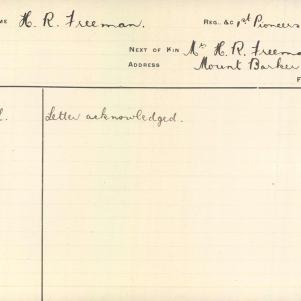 ME H. R. Freeman. REG. &C 1st Pioneers
NEXT OF KIN Mrs H. R. Freema
ADDRESS Mount Barker
F
Letter acknowledged.